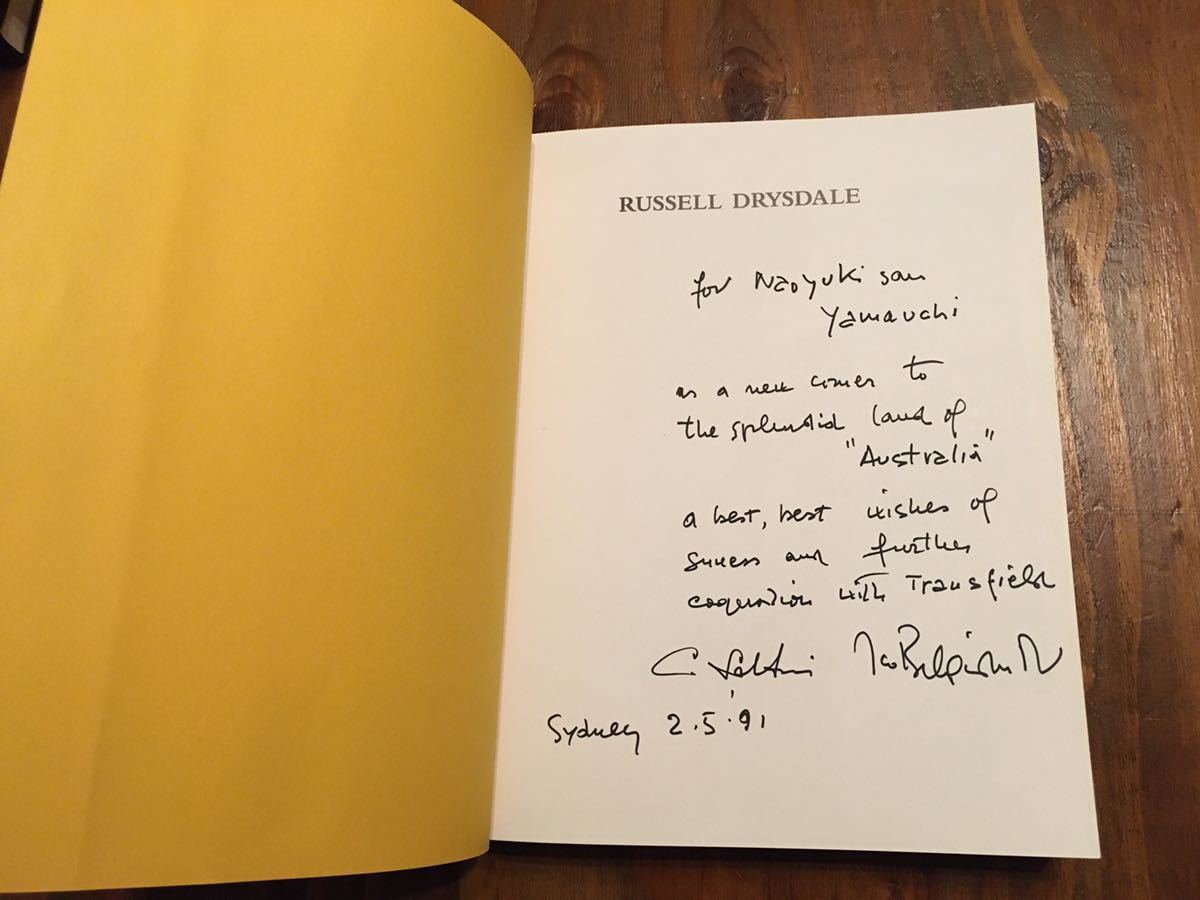 RUSSELL DRYSDALE
for Naoyuki san
Yamauchi
as a new comer to
the splendid land of
"Australia"
a best, best wishes of
success and further
cooperation with Transfield
Sydney 2.5.91